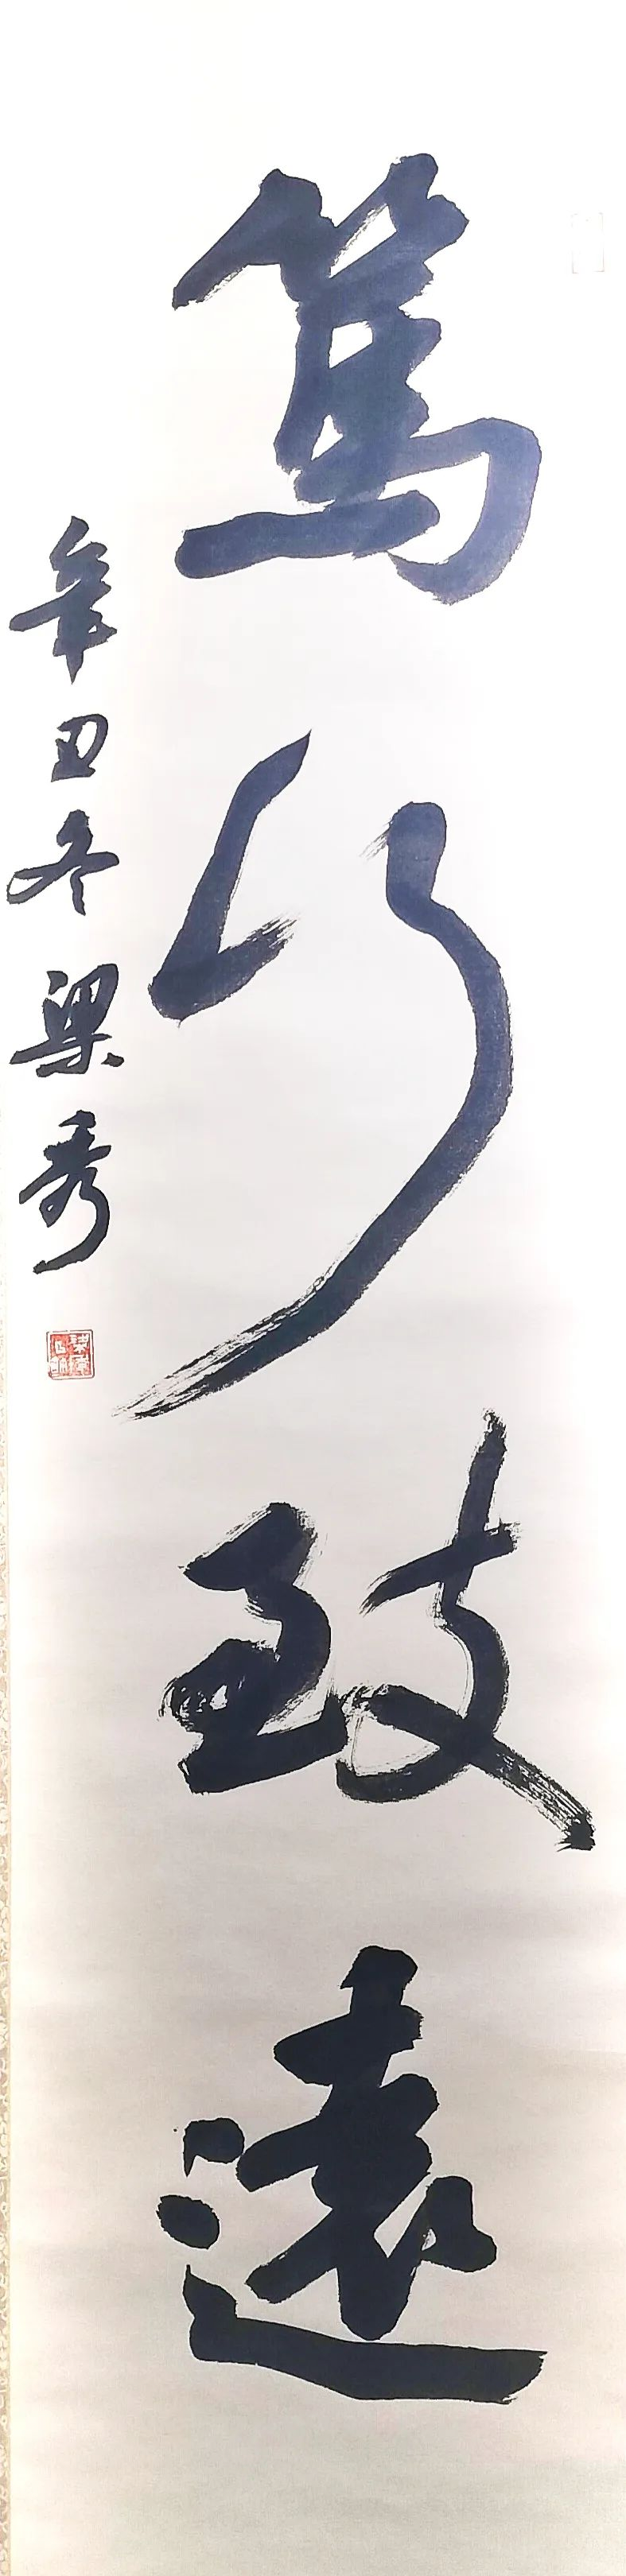 篤行致遠
辛丑冬梁秀